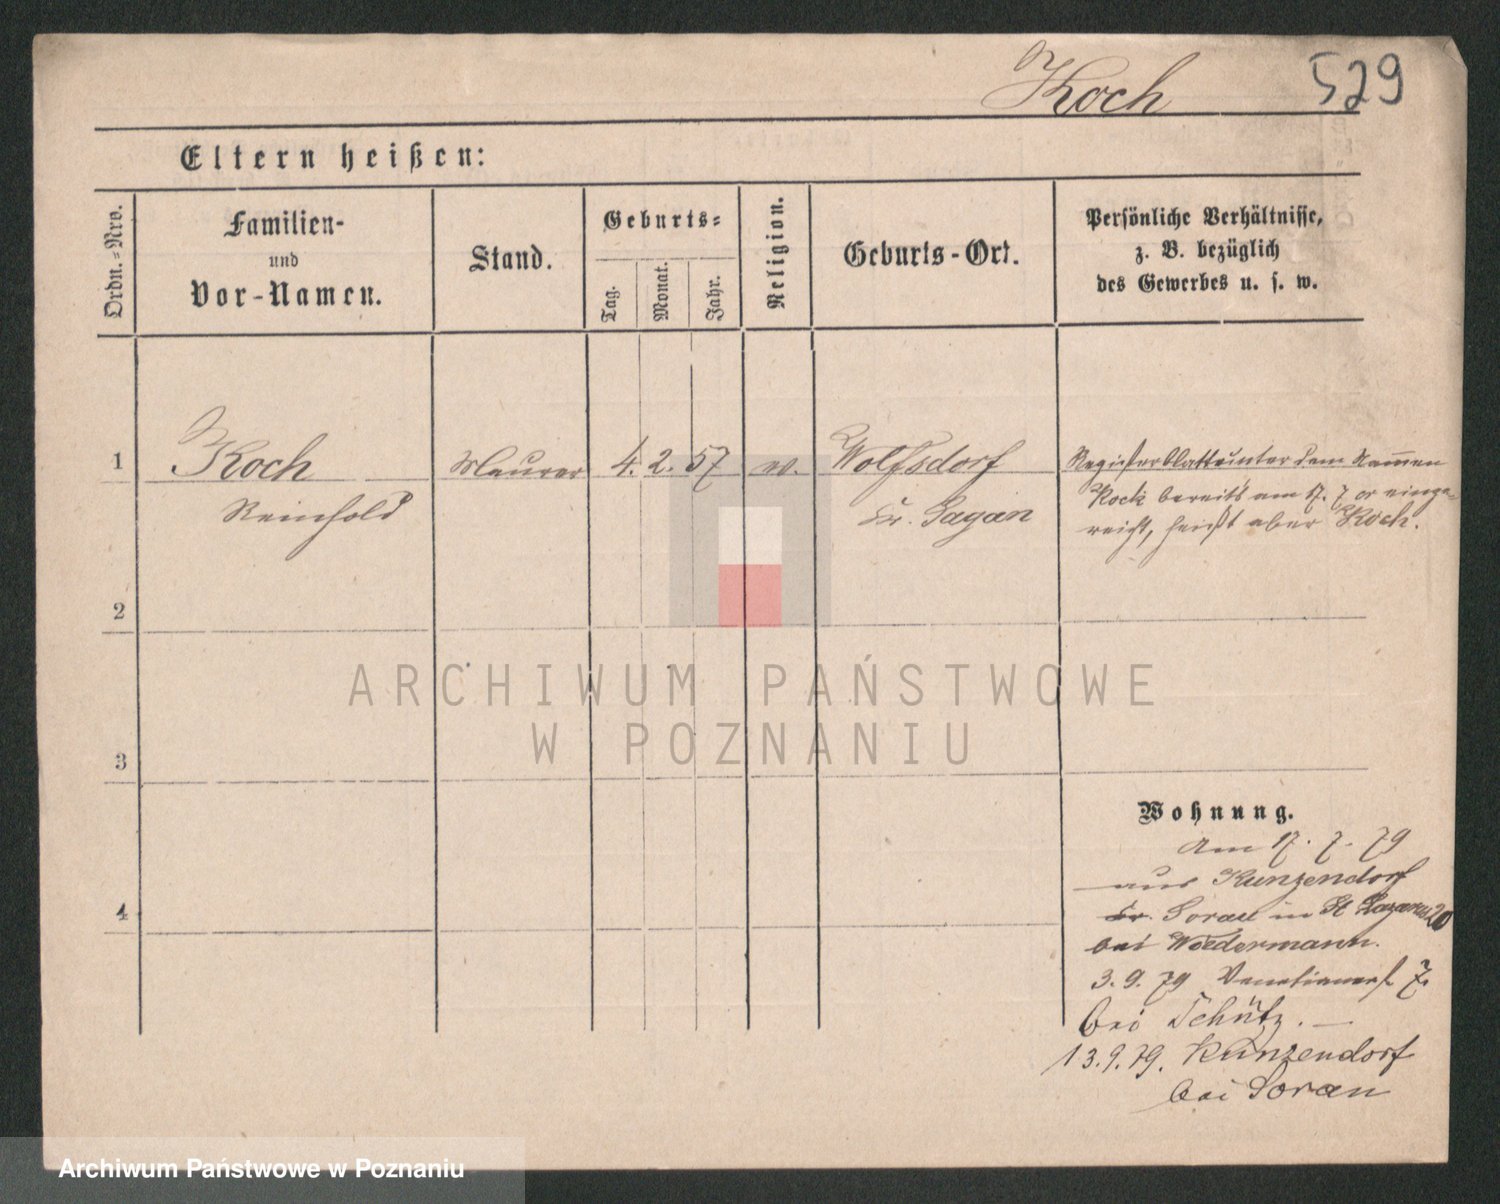 Koch 529
Eltern heißen:
Ordn.-Nro.
Familien-
und
Vor-Namen.
Stand.
Geburts-
Tag.
Monat.
Jahr.
Religion.
Geburts-Ort.
Persönliche Verhältnisse,
z. B. bezüglich
des Gewerbes u. s. w.
1 Koch Maurer 4. 2. 57 ev. Wolfsdorf
Reinhold Kr. Sagan
Registerblatt unter dem Namen
Kock bereits am 17. 7 cr einge-
reicht, heißt aber Koch.
2
3
4
Wohnung.
Am 17. 7. 79
aus Kunzendorf
Kr. Sorau in St Lazarus 20
bei Woedermann.
3. 9. 79 Venetianerst. 7.
bei Schütz.
13.9.79. Kunzendorf
bei Sorau
ARCHIWUM PAŃSTWOWE
W POZNANIU
Archiwum Państwowe w Poznaniu